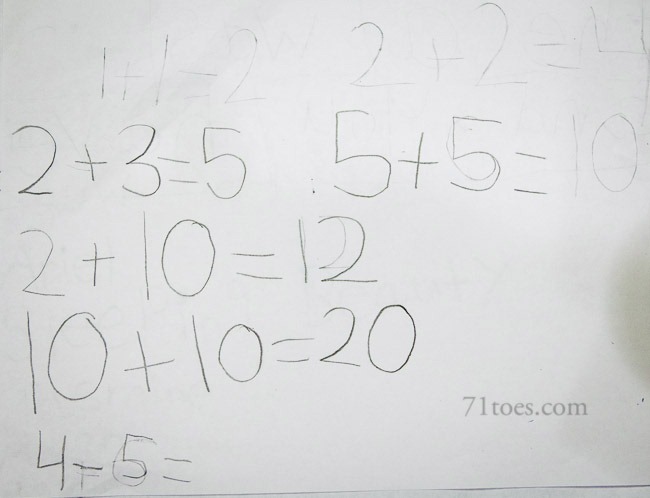 1+1=2 2+2=4
2+3=5 5+5=10
2+10=12
10+10=20
71toes.com
4+5=